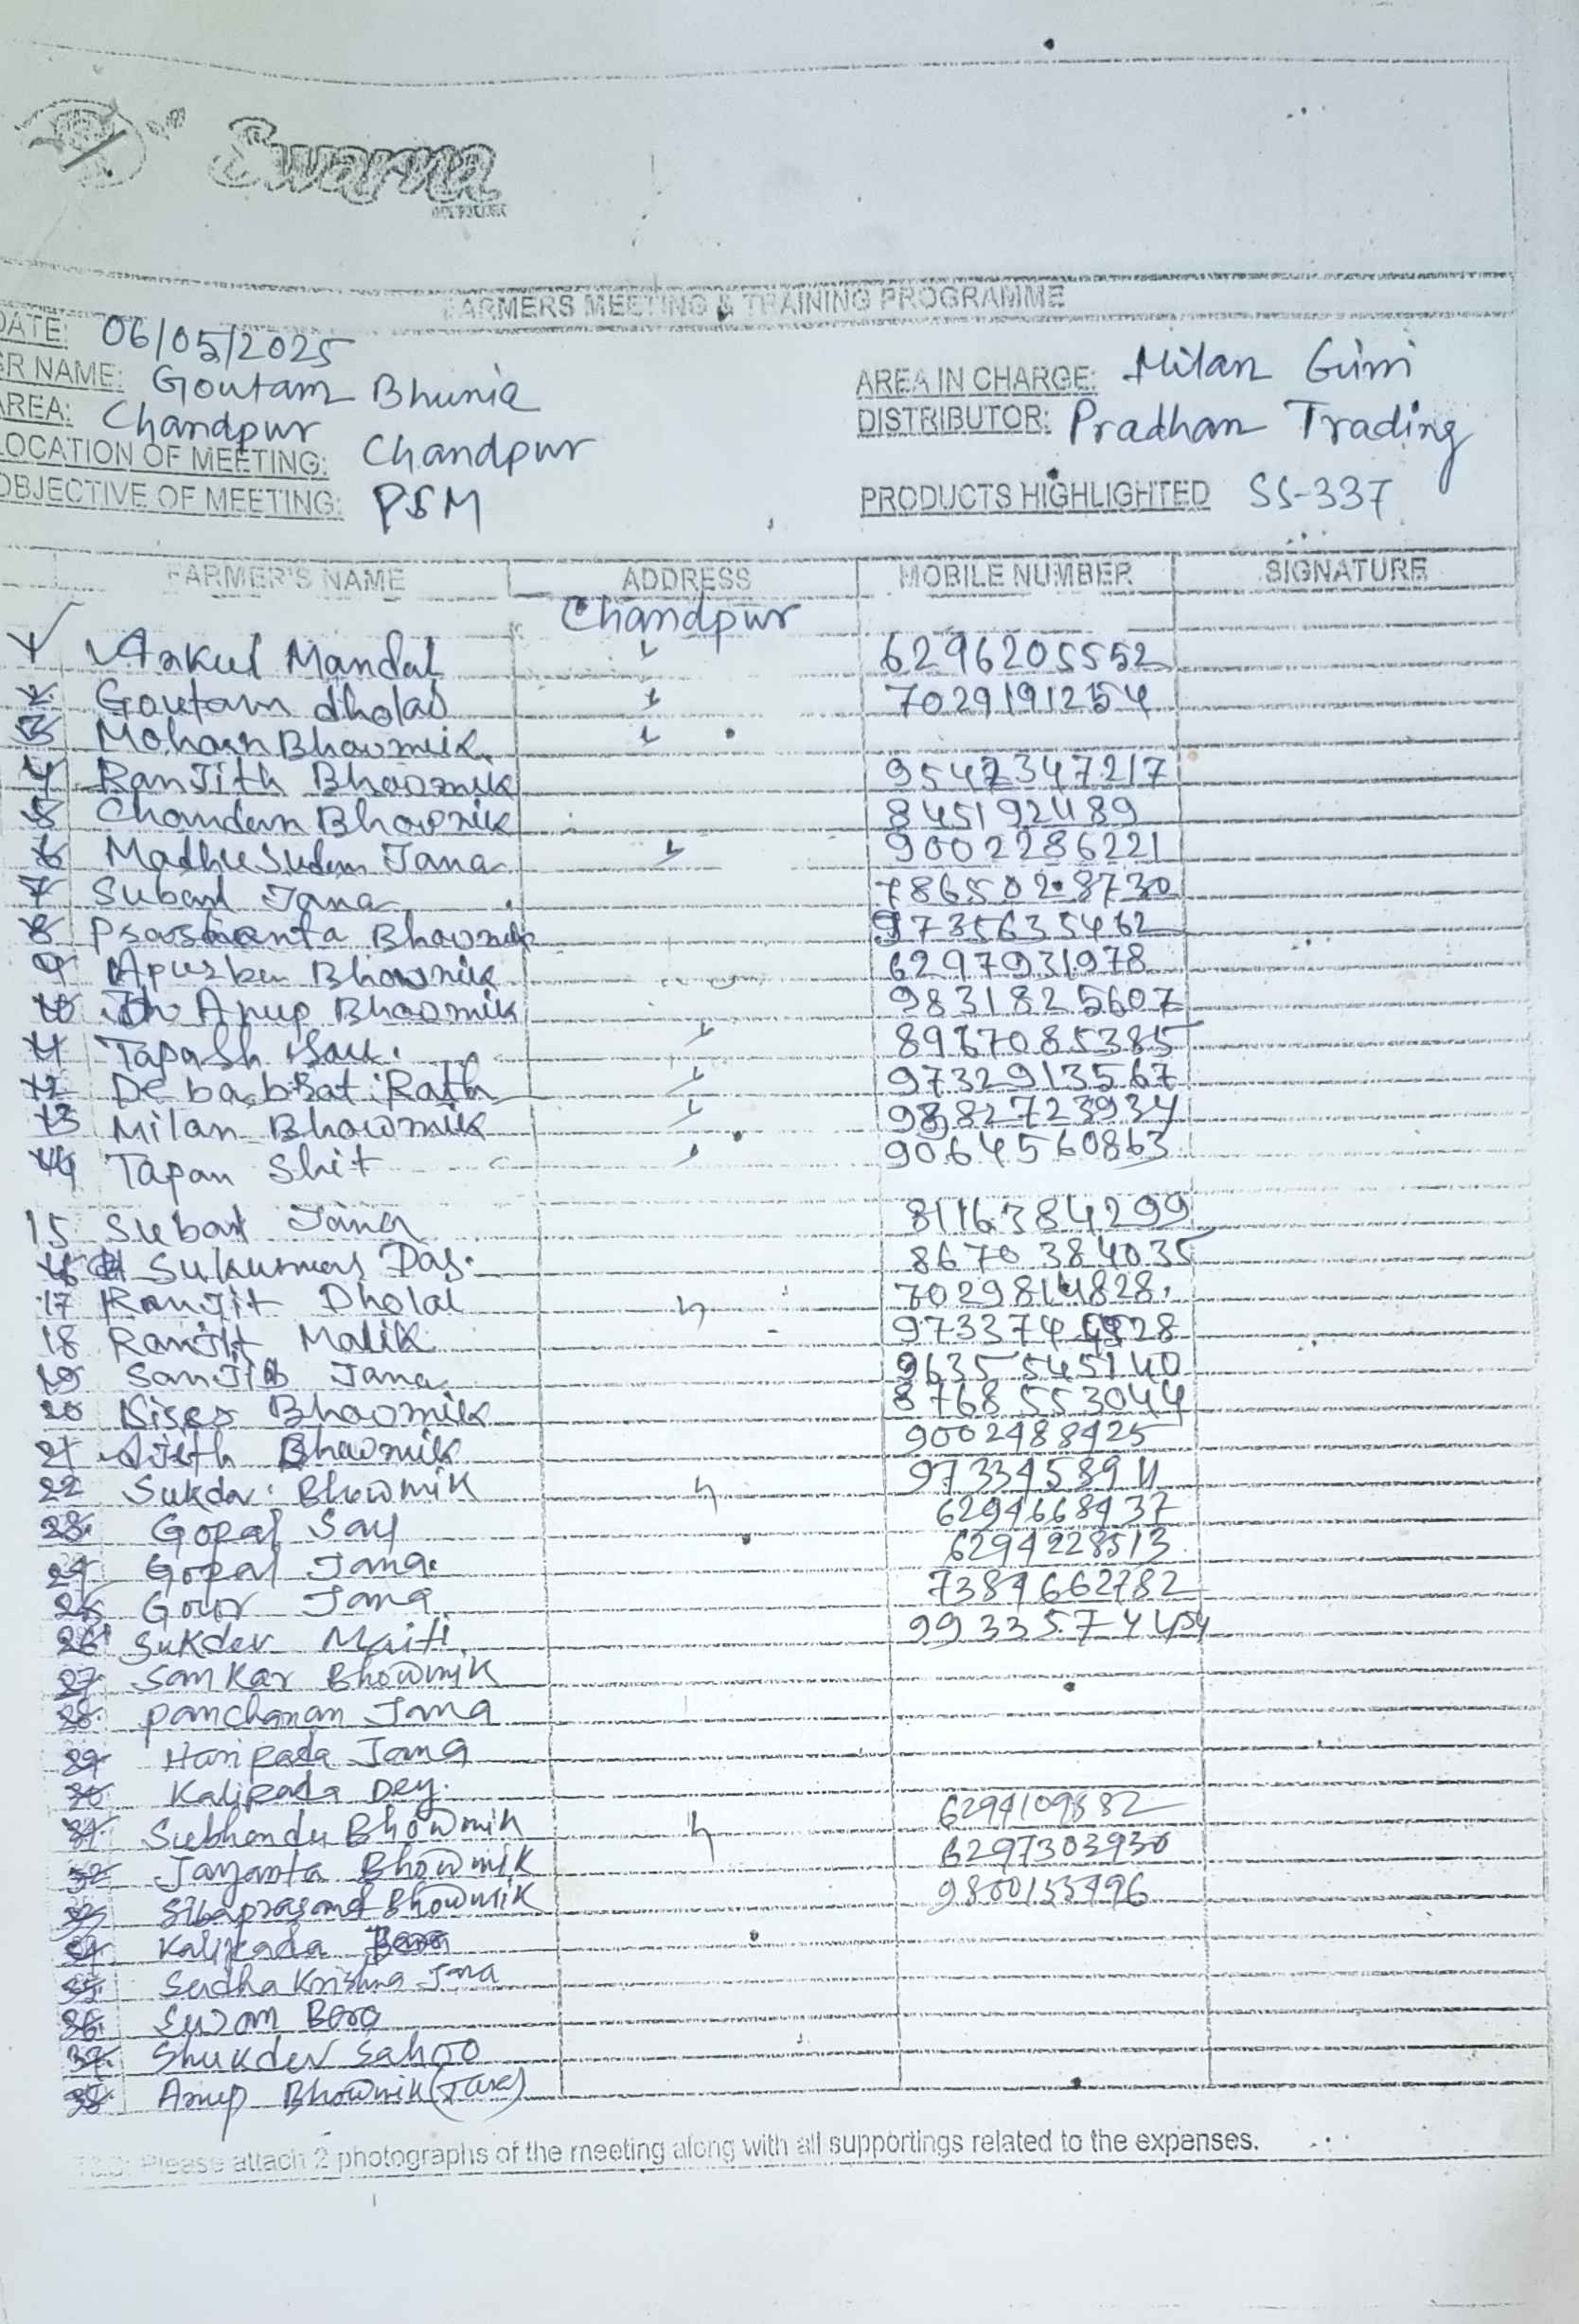 Swarna
FARMERS MEETING & TRAINING PROGRAMME
DATE: 06/05/2025
SR NAME: Goutam Bhunia
AREA IN CHARGE: Milan Giri
AREA: Chandpur
DISTRIBUTOR: Pradhan Trading
LOCATION OF MEETING: Chandpur
OBJECTIVE OF MEETING: PSM
PRODUCTS HIGHLIGHTED SS-337
FARMER'S NAME ADDRESS MOBILE NUMBER SIGNATURE
Chandpur
1 Ankul Mandal 6296205552
2 Goutam dholai 7029191254
3 Mohan Bhowmik
4 RanJith Bhowmik 9547347217
5 Chandan Bhowmik 845192489
6 MadhuSudan Jana 9002286221
7 Subal Jana 7865028730
8 Prasanta Bhowmik 9735635462
9 Apurba Bhowmik 6297931978
10 Anup Bhowmik 9831825607
11 Tapash 8967085385
12 Debabrat Rath 9732913567
13 Milan Bhowmik 9882723934
14 Tapan Shit 9064560863
15 Subal Jana 8116384299
16 Sukumar Das. 8670384035
17 Ranjit Dholai 7029814828
18 Ranjit Malik 973374
19 SanJib Jana 9635545140
20 Bhowmik 8768553044
21 Ajith Bhowmik 9002488425
22 Sukdev Bhowmik 973345894
23. Gopal Say 6294668437
24 Gopal Jana 6294228513
25 Gour Jana 7384662782
26 Sukdev Maiti 993357
27 Samkar Bhowmik
28. panchanan Jana
29 Haripada Jana
30 Kalipada Dey.
31. Subhendu Bhowmik 6294109882
32 Jayanta Bhowmik 6297303930
33 Sibaprasand Bhowmik 9800153496
34. Kalipada Bera
35. Sudha Krishna Jana
36. Sujan Bera
37. Shukdev Sahoo
38. Anup Bhowmik
Please attach 2 photographs of the meeting along with all supportings related to the expenses.